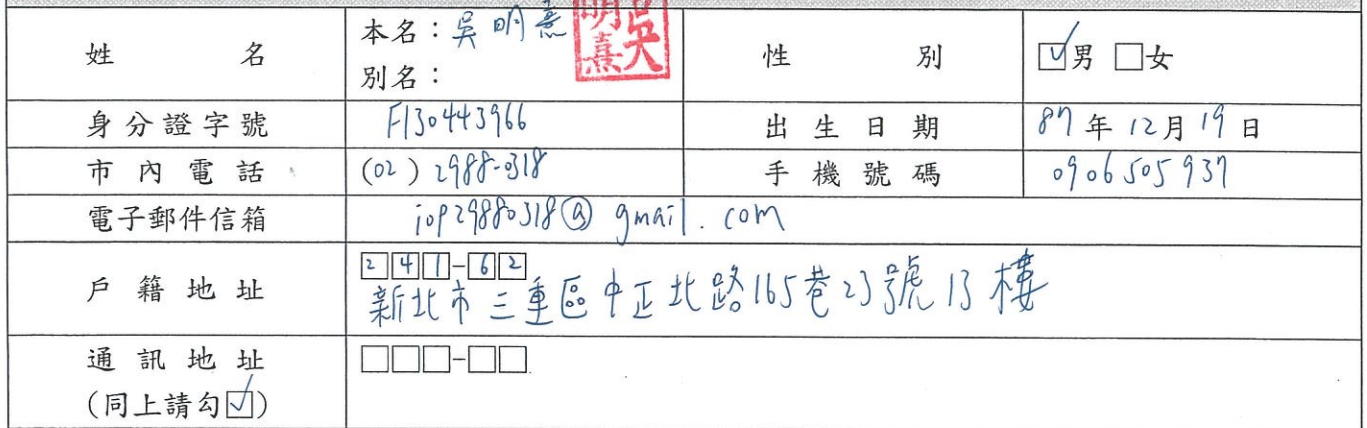 姓名 本名：吳明熹 吳明熹 性別 ☑男 □女
別名：
身分證字號 F130443966 出生日期 87年12月19日
市內電話 (02) 2988-0318 手機號碼 0906505937
電子郵件信箱 iop29880318@gmail.com
戶籍地址 241-62
新北市三重區中正北路165巷23號13樓
通訊地址 □□□-□□
(同上請勾☑)